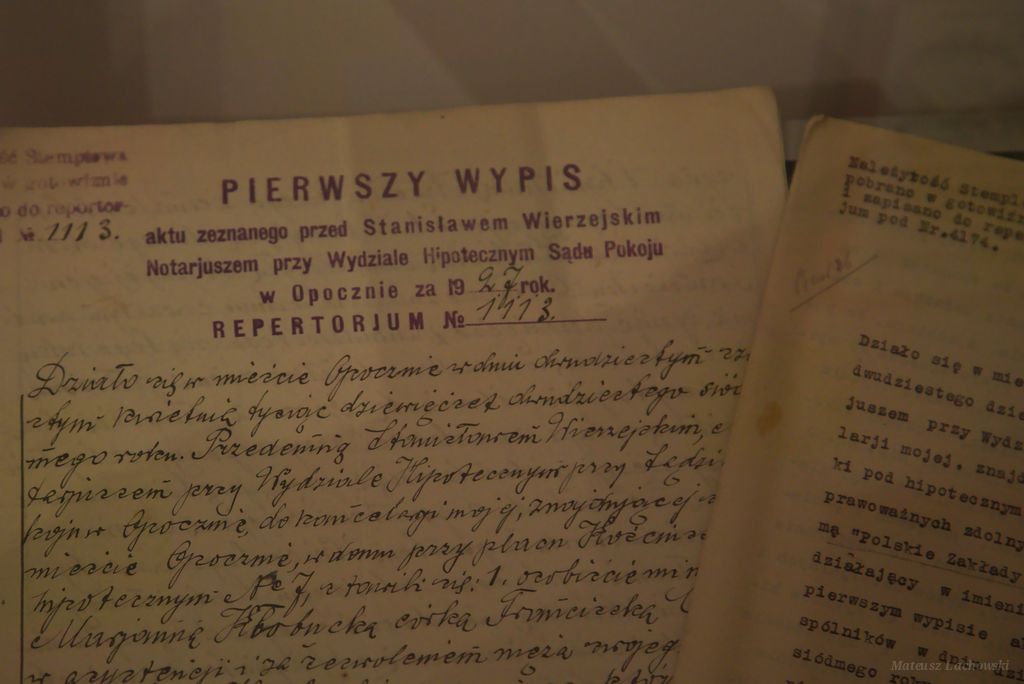 ść Stemplowa
w gotowiźnie
o do reportor-
№ 1113.
PIERWSZY WYPIS
aktu zeznanego przed Stanisławem Wierzejskim
Notarjuszem przy Wydziale Hipotecznym Sądu Pokoju
w Opocznie za 1927 rok.
REPERTORJUM № 1113.
Działo się w mieście Opocznie w dniu dwudziestym
stym kwietnia tysiąc dziewięćset dwudziestego siód
mego roku. Przedemną Stanisławem Wierzejskim,
tarjuszem przy Wydziale Hipotecznym przy Sądzie
koju w Opocznie, do kancelarji mojej, znajdującej
mieście Opocznie, w domu przy placu Kościu
hipotecznym № 7, stawili się: 1. osobiście
Marjanna Kłobucka córka Franciszka
w asystencji i za zezwoleniem męża swojego
Należyłość Stempl
pobrano w gotowiźn
i zapisano do repe
jum pod Nr.4174.
Działo się w mie
dwudziestego dzie
juszem przy Wydz
larji mojej, znajd
ki pod hipotecznym
prawoważnych zdolny
mą "Polskie Zakłady
działający w imieni
pierwszym wypisie a
spólników w dniu dzi
siódmego roku
Mateusz Lachowski